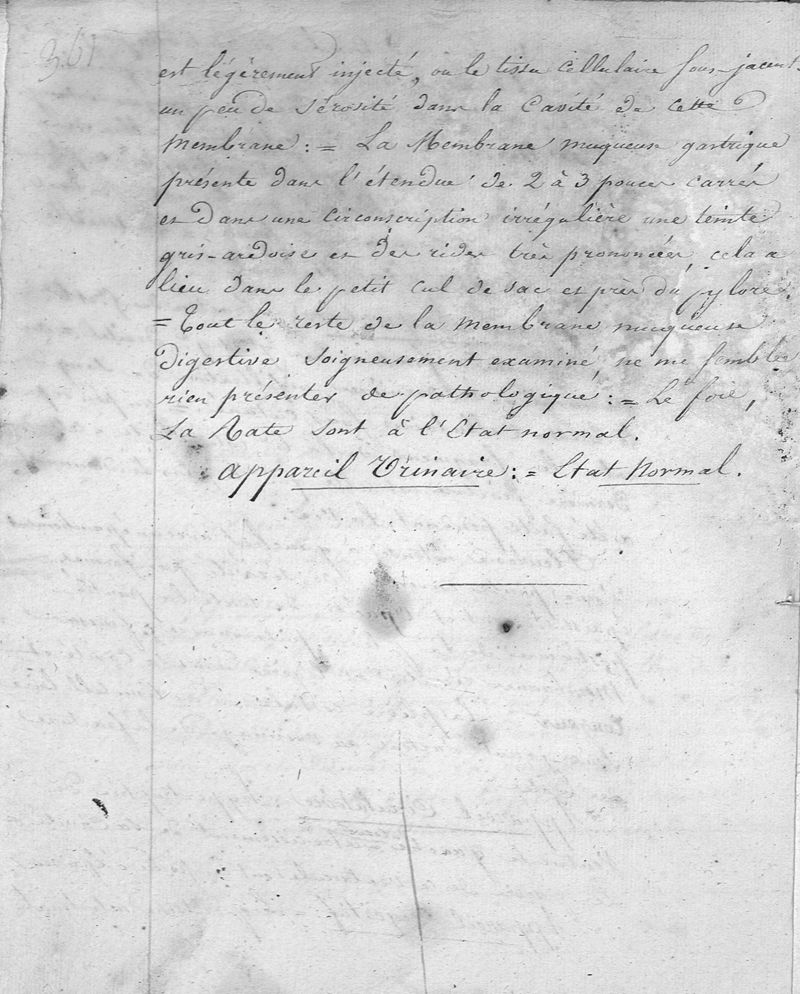 361
est légèrement injecté, ou le tissu cellulaire sous-jacent
un peu de sérosité dans la cavité de cette
membrane : = La Membrane muqueuse gastrique
présente dans l'étendue de 2 à 3 pouces carrés
et dans une circonscription irrégulière une teinte
gris-ardoise et des rides très prononcées, cela a
lieu dans le petit cul de sac et près du pylore.
= Tout le reste de la membrane muqueuse
digestive soigneusement examiné, ne me semble
rien présenter de pathologique : = Le foie,
La Rate sont à l'Etat normal.
appareil Urinaire : = Etat Normal.